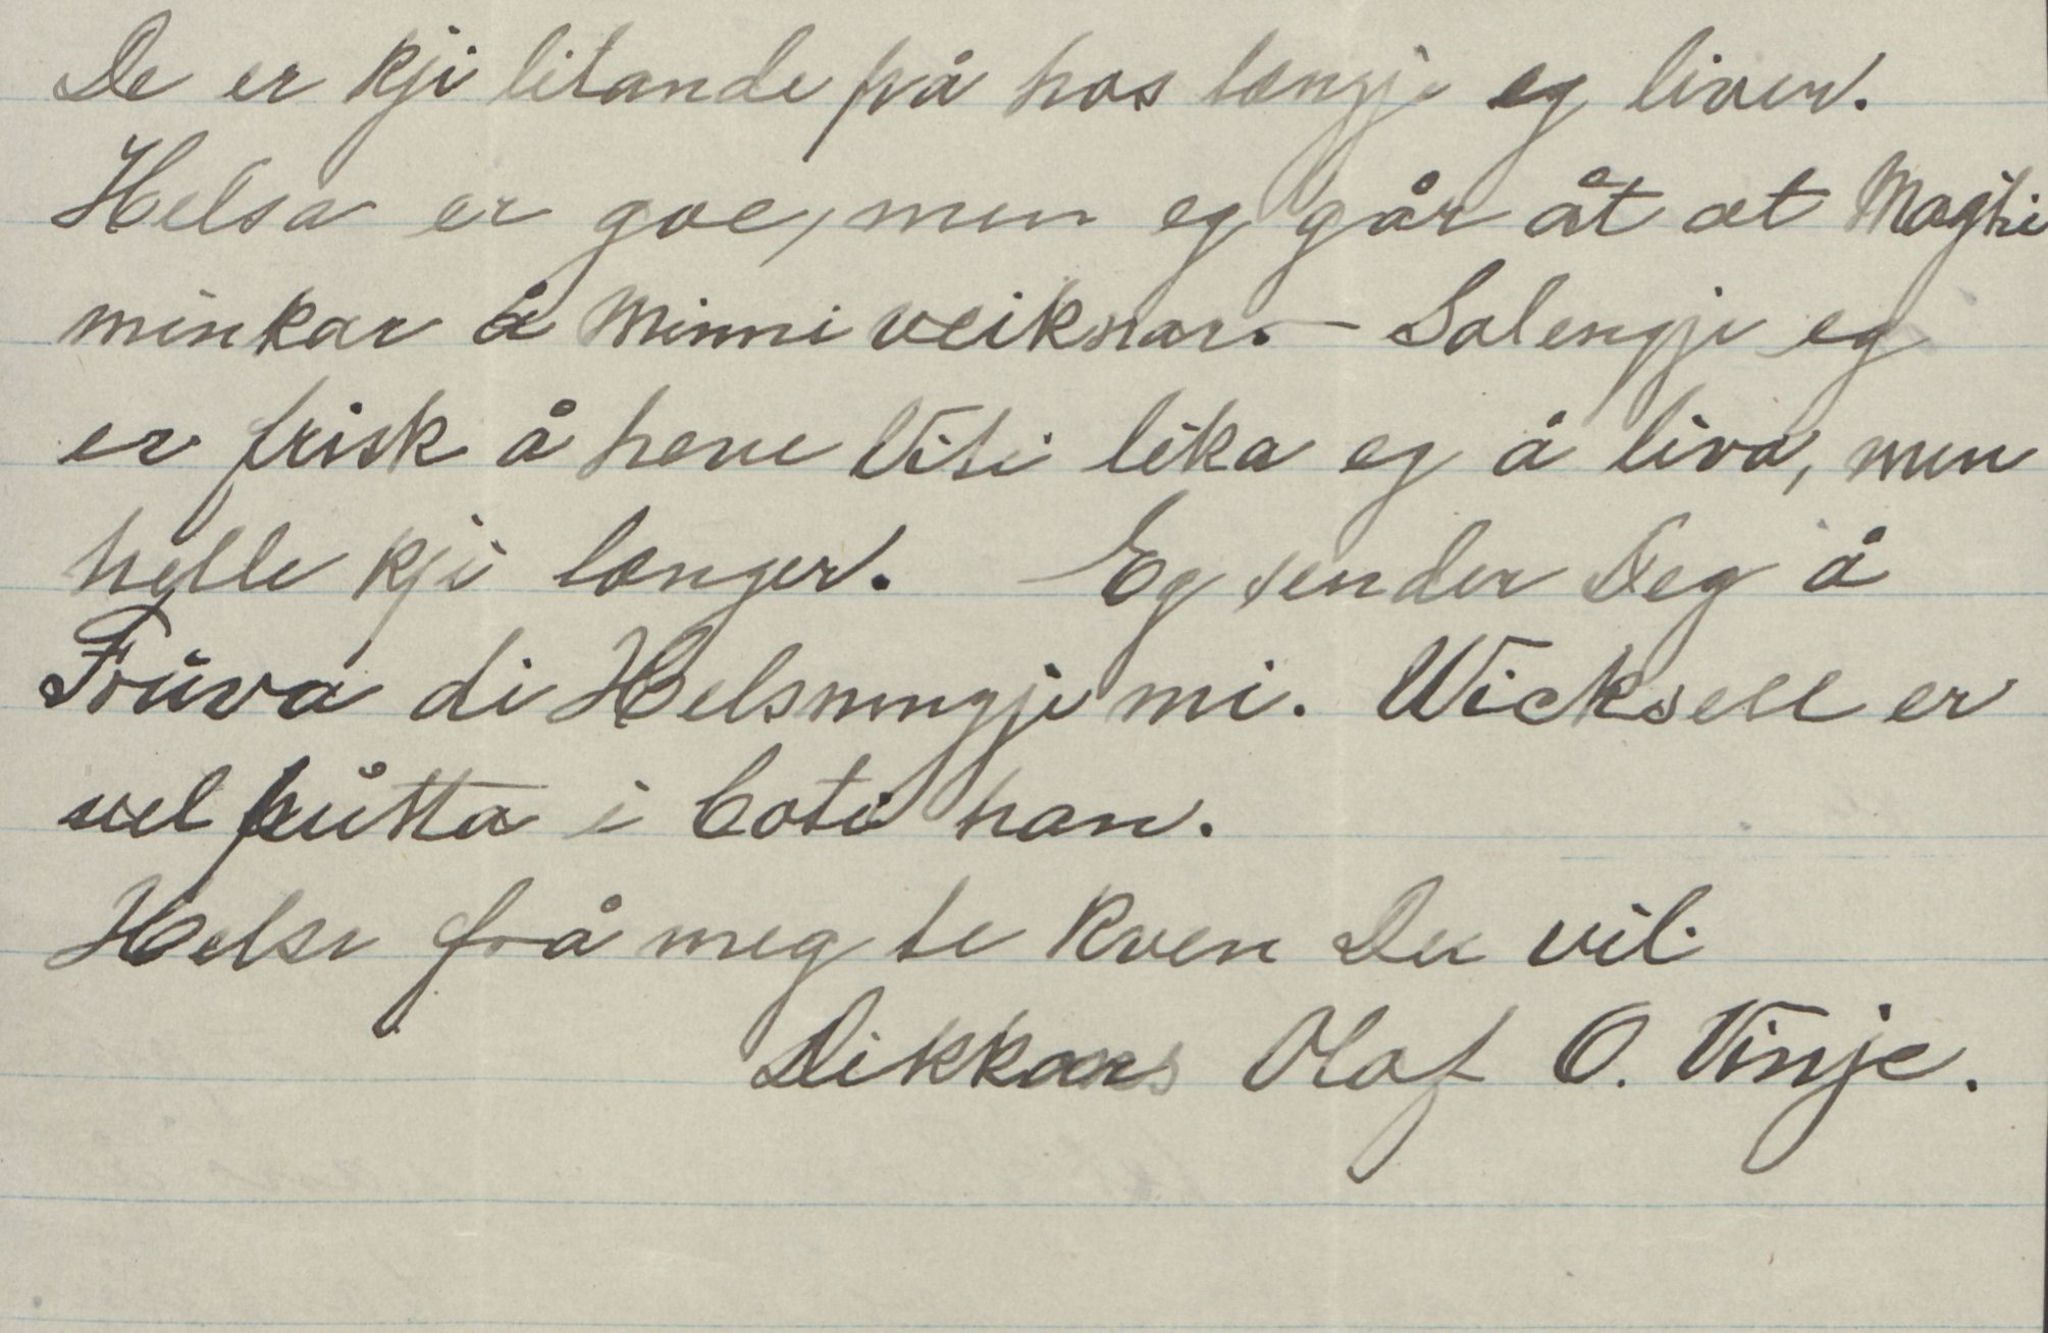 De er kji litande på hos længje eg liver.
Helsa er goe, men eg går åt at Magti
minkar å Minni veiknar. — Salengje eg
er frisk å heve Viti lika eg å liva, men
helle kji længer. Eg sender Deg å
Frúva di Helsnungje mi. Wicksell er
vel pútta i boti han.
Helse frå meg te kven Du vil.
Dikkans Olaf O. Vinje.